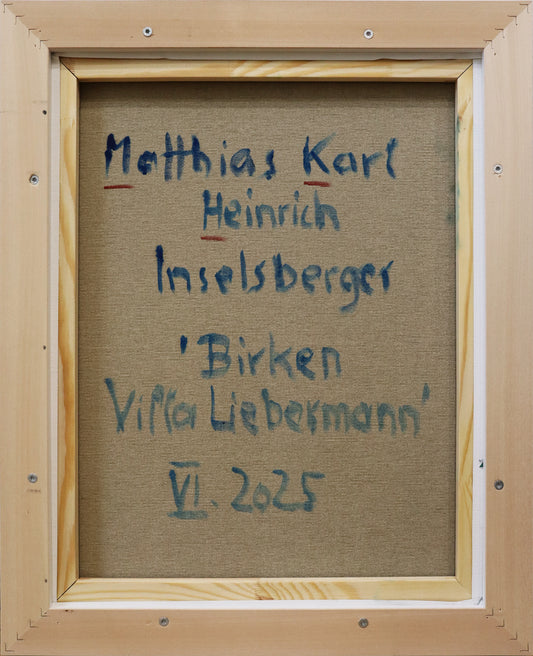 Matthias Karl
Heinrich
Inselsberger
'Birken
Villa Liebermann'
VI. 2025